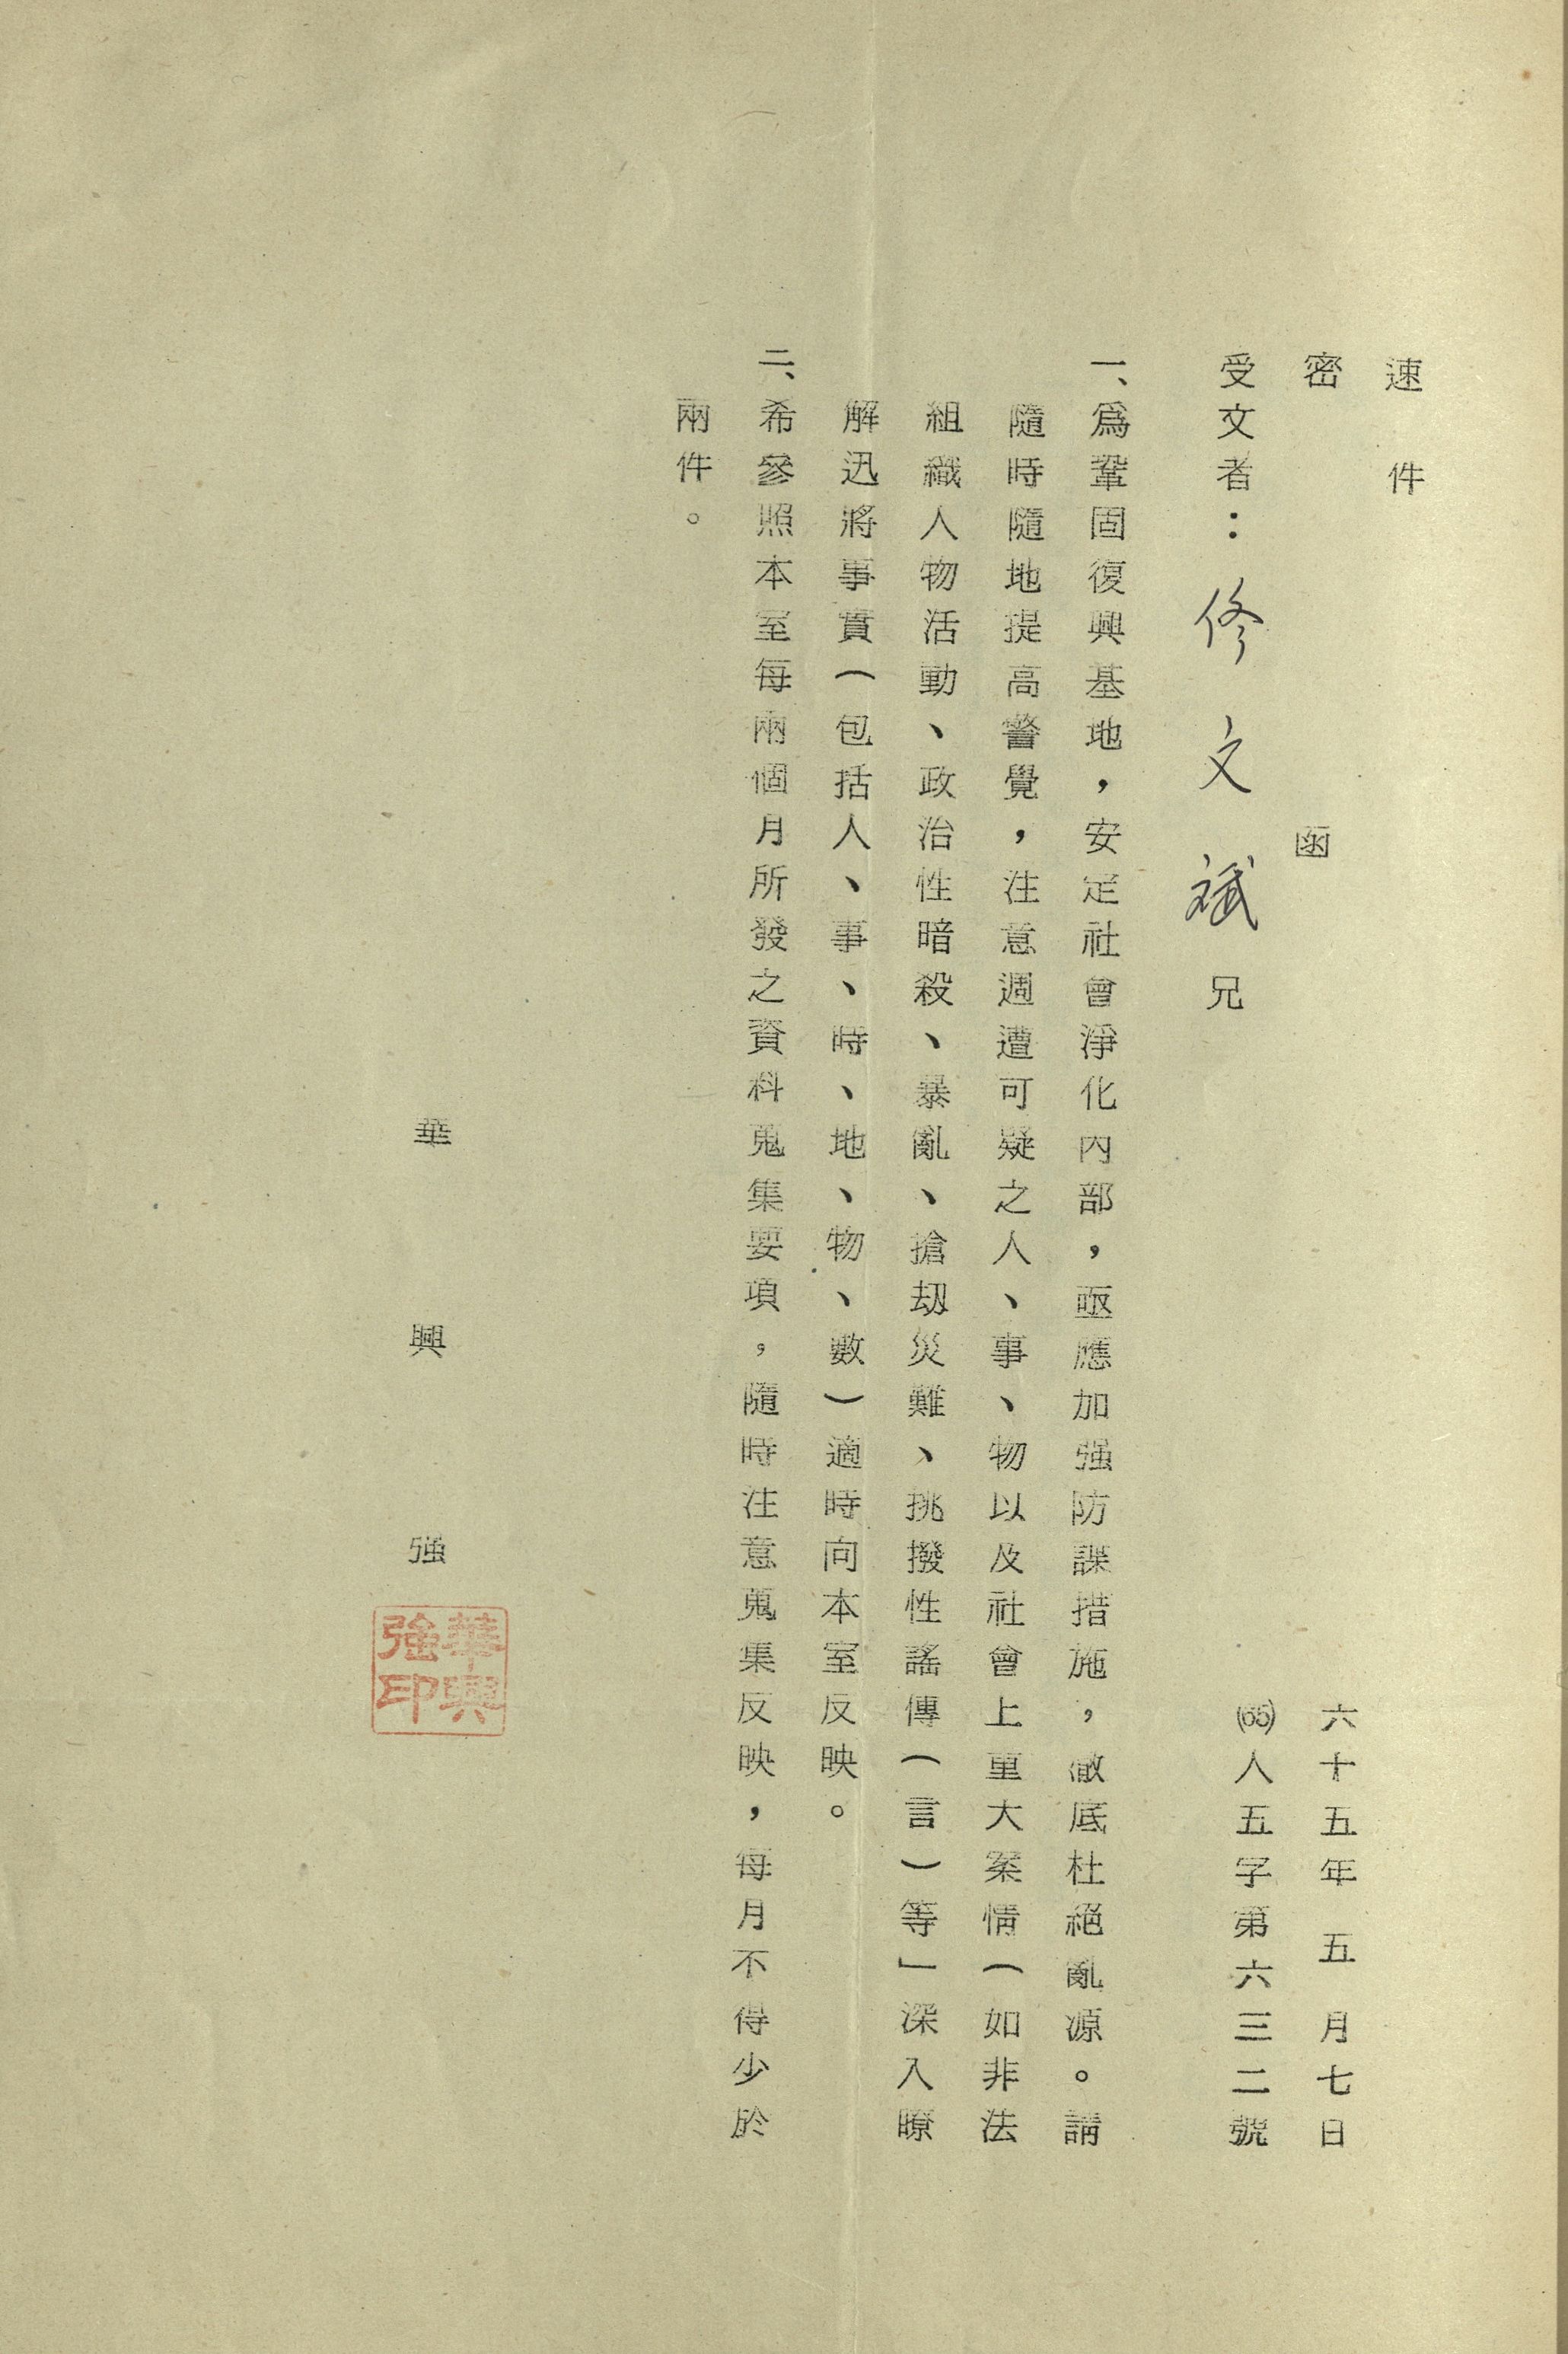 速件
密
函
六十五年五月七日
受文者：修文斌兄
(65)人五字第六三二號
一、爲鞏固復興基地，安定社會淨化內部，亟應加强防諜措施，澈底杜絕亂源。請
隨時隨地提高警覺，注意週遭可疑之人、事、物以及社會上重大案情（如非法
組織人物活動、政治性暗殺、暴亂、搶刧災難、挑撥性謠傳（言）等」深入瞭
解迅將事實（包括人、事、時、地、物、數）適時向本室反映。
二、希參照本室每兩個月所發之資料蒐集要項，隨時注意蒐集反映，每月不得少於
兩件。
華興強
華興強印